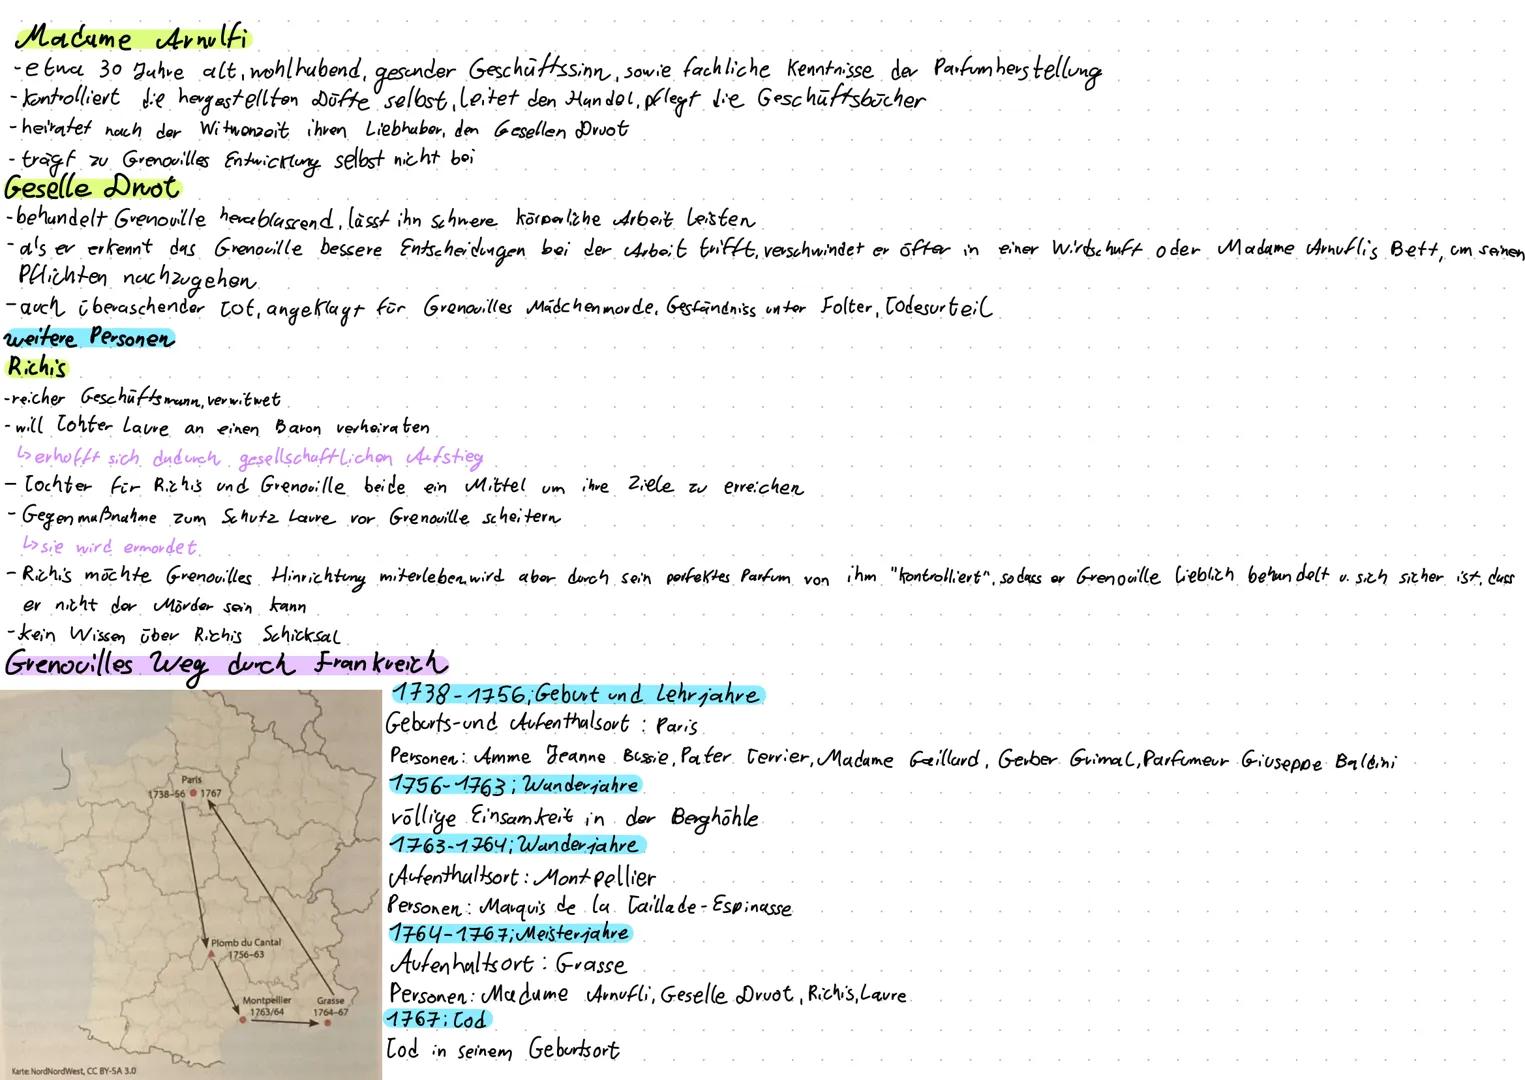 Madame Arnulfi
-etwa 30 Jahre alt, wohlhabend, gesunder Geschäftssinn, sowie fachliche Kenntnisse der Parfumherstellung
-kontrolliert die hergestellten Düfte selbst, leitet den Handel, pflegt die Geschäftsbücher
-heiratet nach der Witwenzeit ihren Liebhaber, den Gesellen Druot
-trägt zu Grenouilles Entwicklung selbst nicht bei
Geselle Druot
-behandelt Grenouille herablassend, lässt ihn schwere körperliche Arbeit leisten
-als er erkennt das Grenouille bessere Entscheidungen bei der Arbeit trifft, verschwindet er öfter in einer Wirtschaft oder Madame Arnuflis Bett, um seinen
Pflichten nachzugehen
-auch überaschender Tot, angeklagt für Grenouilles Mädchenmorde, Geständniss unter Folter, Todesurteil
weitere Personen
Richis
-reicher Geschäftsmann, verwitwet
-will Tohter Laure an einen Baron verheiraten
↳erhofft sich dadurch gesellschaftlichen Aufstieg
-Tochter für Richis und Grenouille beide ein Mittel um ihre Ziele zu erreichen
-Gegenmaßnahme zum Schutz Laure vor Grenouille scheitern
↳sie wird ermordet
-Richis möchte Grenouilles Hinrichtung miterleben, wird aber durch sein perfektes Parfum von ihm "kontrolliert", sodass er Grenouille lieblich behandelt u. sich sicher ist, dass
er nicht der Mörder sein kann
-kein Wissen über Richis Schicksal
Grenouilles Weg durch Frankreich
1738-1756; Geburt und Lehrjahre
Geburts-und Aufenthalsort: Paris
Personen: Amme Jeanne Bussie, Pater Terrier, Madame Gaillard, Gerber Grimal, Parfumeur Giuseppe Baldini
1756-1763; Wanderjahre
völlige Einsamkeit in der Berghöhle
1763-1764; Wanderjahre
Aufenthaltsort: Montpellier
Personen: Marquis de la Taillade-Espinasse
1764-1767; Meisterjahre
Aufenhaltsort: Grasse
Personen: Madame Arnufli, Geselle Druot, Richis, Laure
1767; Tod
Tod in seinem Geburtsort
Paris
1738-56 1767
Plomb du Cantal
1756-63
Montpellier
1763/64
Grasse
1764-67
Karte: NordNordWest, CC BY-SA 3.0